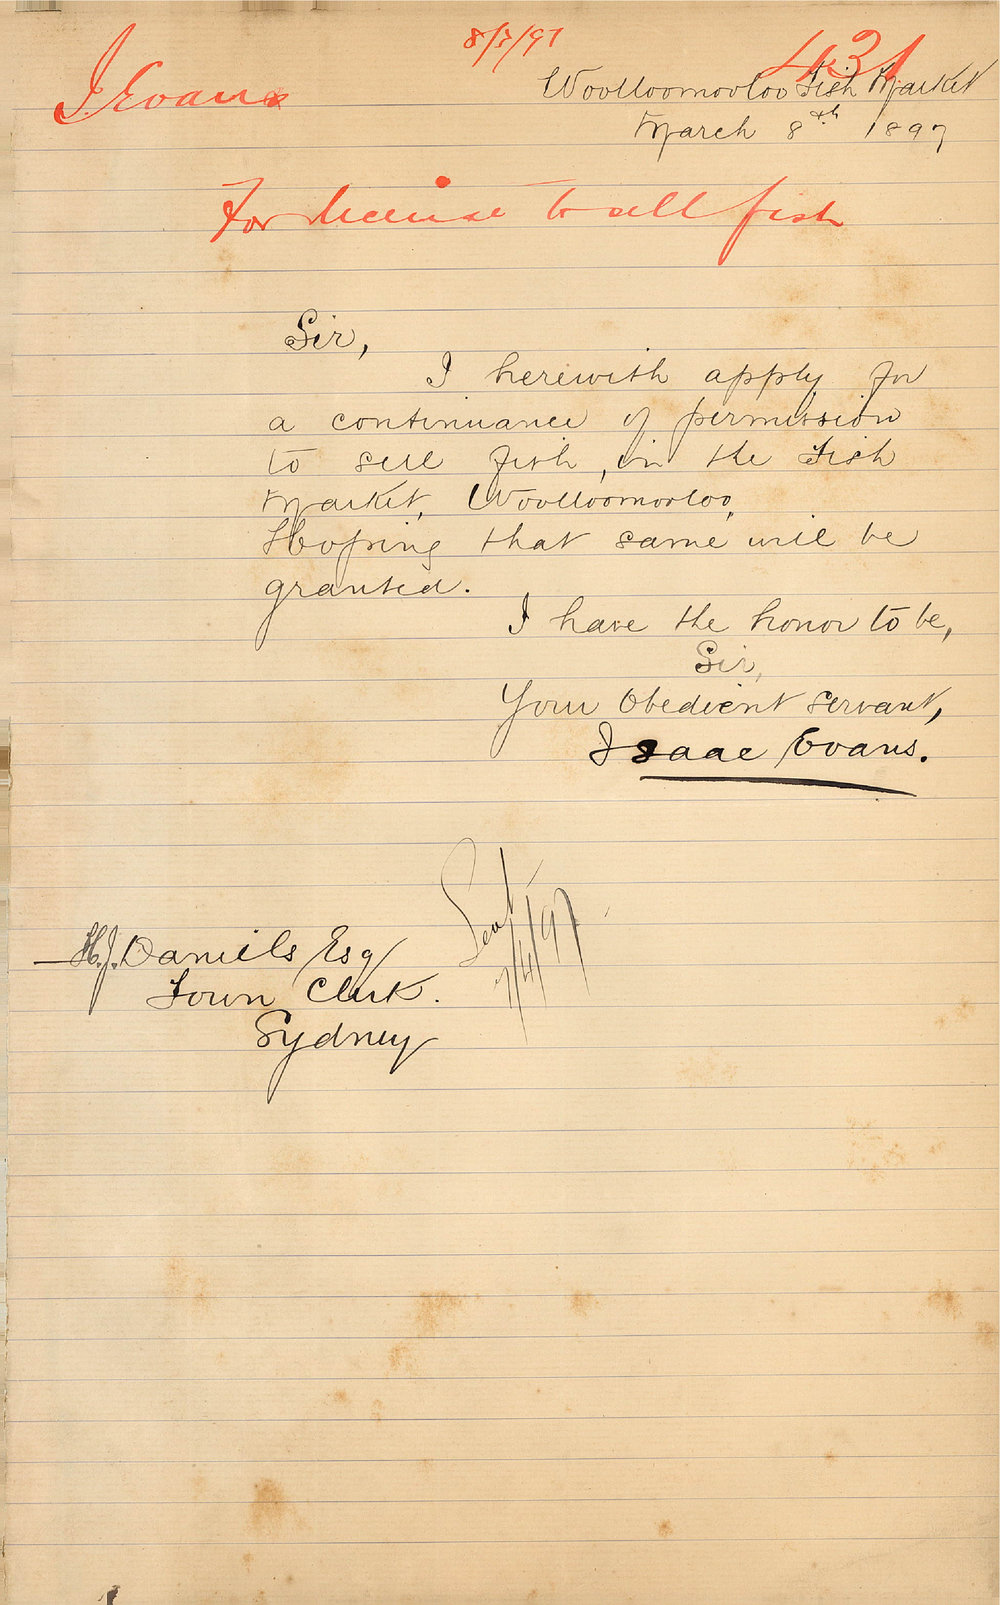 8/3/97
431
I. Evans
Woolloomooloo Fish Market
March 8th 1897
For license to sell fish
Sir,
I herewith apply for
a continuance of permission
to sell fish, in the Fish
Market, Woolloomooloo,
Hoping that same will be
granted.
I have the honor to be,
Sir,
Your Obedient Servant,
Isaac Evans.
Sent
7/4/97
H.J. Daniels Esq
Town Clerk.
Sydney